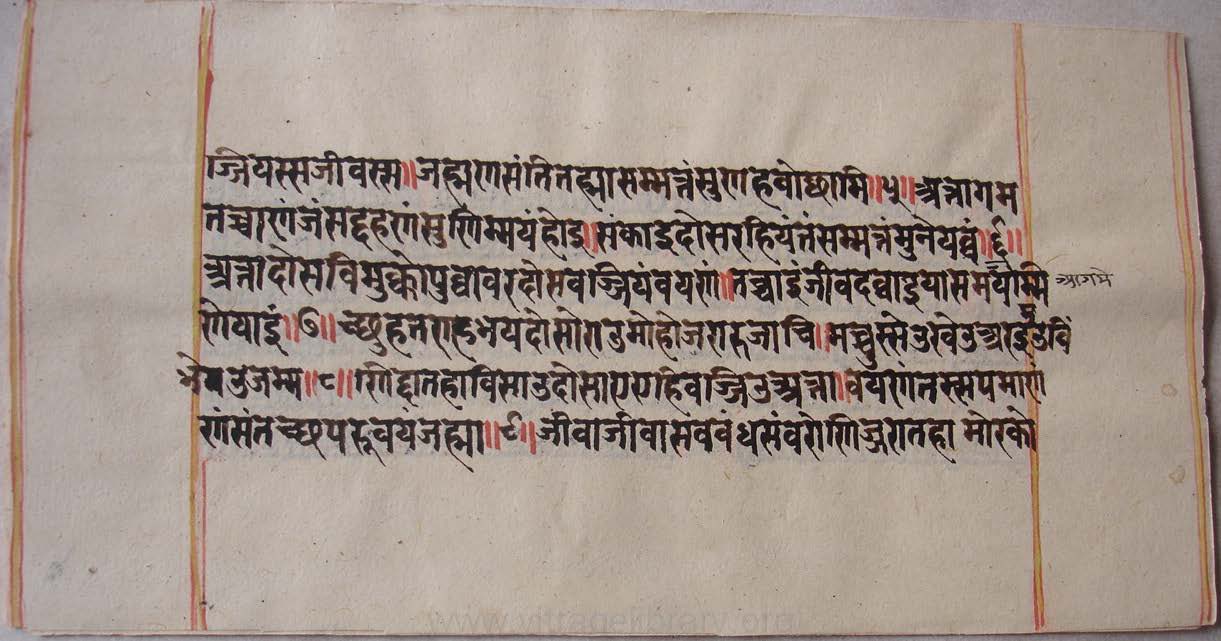 ज्जियस्सजीवस्स॥जह्मणसंतितह्मासम्मत्तंसुणहवोछामि॥५॥अत्तागम
तच्चाणंजंसद्दहणंसुणिम्मयंहोइ॥संकाइदोसरहियंतंसम्मत्तंमुनेयव्वं॥६॥
अत्तादोसविमुक्कोपुव्वावरदोसवज्जियंवयणं॥तच्चाइंजीवदव्वाइयासमयम्मि
आगमे
णेयाइं॥७॥च्छुहतराहभयदोसोरातुमोहोजरारुजाचि॥मच्चुस्सेउखेउअरइउविं
भेवउजम्म॥८॥णिद्दातहाविसाउदोसाएएहिवज्जिउअत्ता॥वयणंतस्सपमाणं
णंसंतच्छपरूवयंजह्मा॥९॥जीवाजीवासवबंधसंवरोणिज्जरातहामोरको